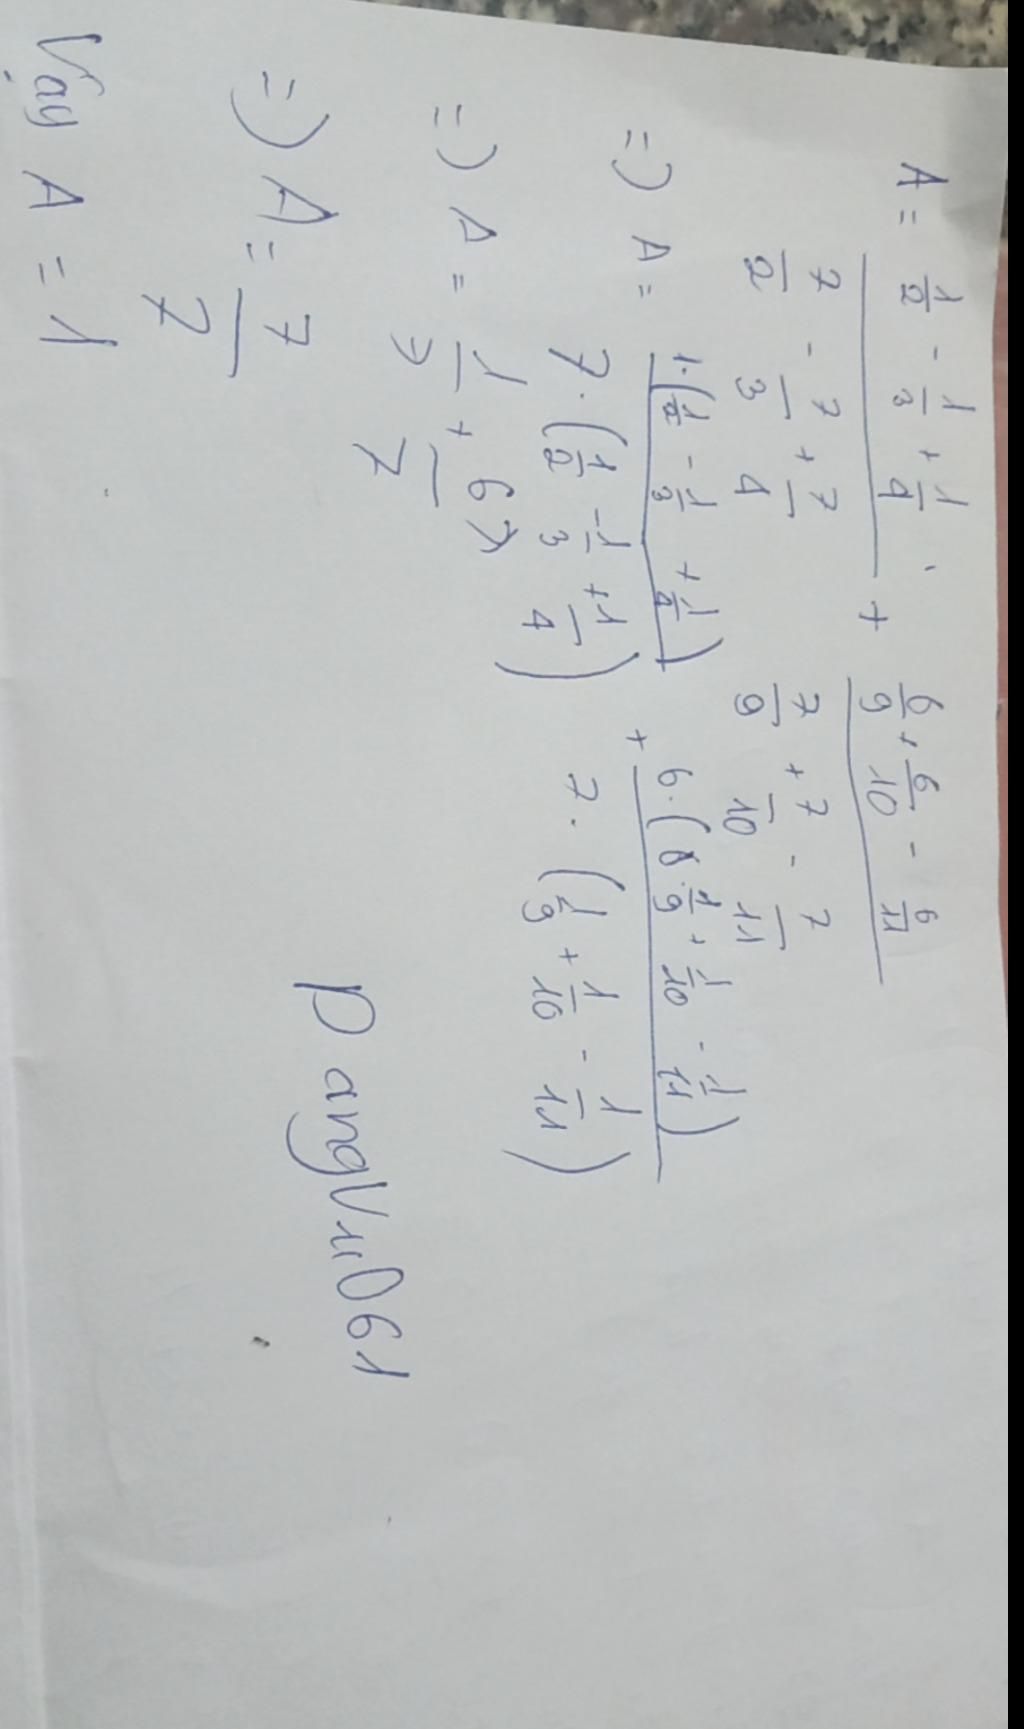 A = \frac{\frac{1}{2} - \frac{1}{3} + \frac{1}{4}}{\frac{7}{2} - \frac{7}{3} + \frac{7}{4}} + \frac{\frac{6}{9} + \frac{6}{10} - \frac{6}{11}}{\frac{7}{9} + \frac{7}{10} - \frac{7}{11}}
=) A = \frac{1.(\frac{1}{2} - \frac{1}{3} + \frac{1}{4})}{7.(\frac{1}{2} - \frac{1}{3} + \frac{1}{4})} + \frac{6.(\frac{1}{9} + \frac{1}{10} - \frac{1}{11})}{7.(\frac{1}{9} + \frac{1}{10} - \frac{1}{11})}
=) A = \frac{1}{7} + \frac{6}{7}
=) A = \frac{7}{7}
Vậy A = 1
DangVu061